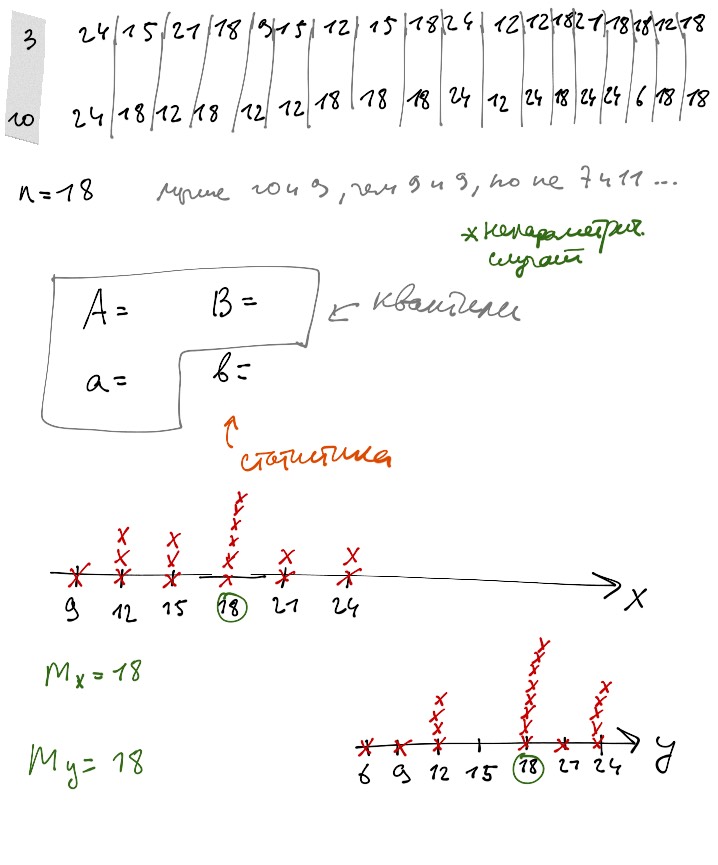 3 24 15 21 18 9 15 12 15 18 24 12 12 18 21 18 18 12 18
10 24 18 12 18 12 12 18 18 18 24 12 24 18 24 24 6 18 18
n=18 лучше 10 и 9, чем 9 и 9, но не 7 и 11 ...
*непараметрич.
случай
A= B=
← квантили
a= b=
↑
статистика
9 12 15 18 21 24 x
Mx = 18
My = 18
6 9 12 15 18 21 24 y